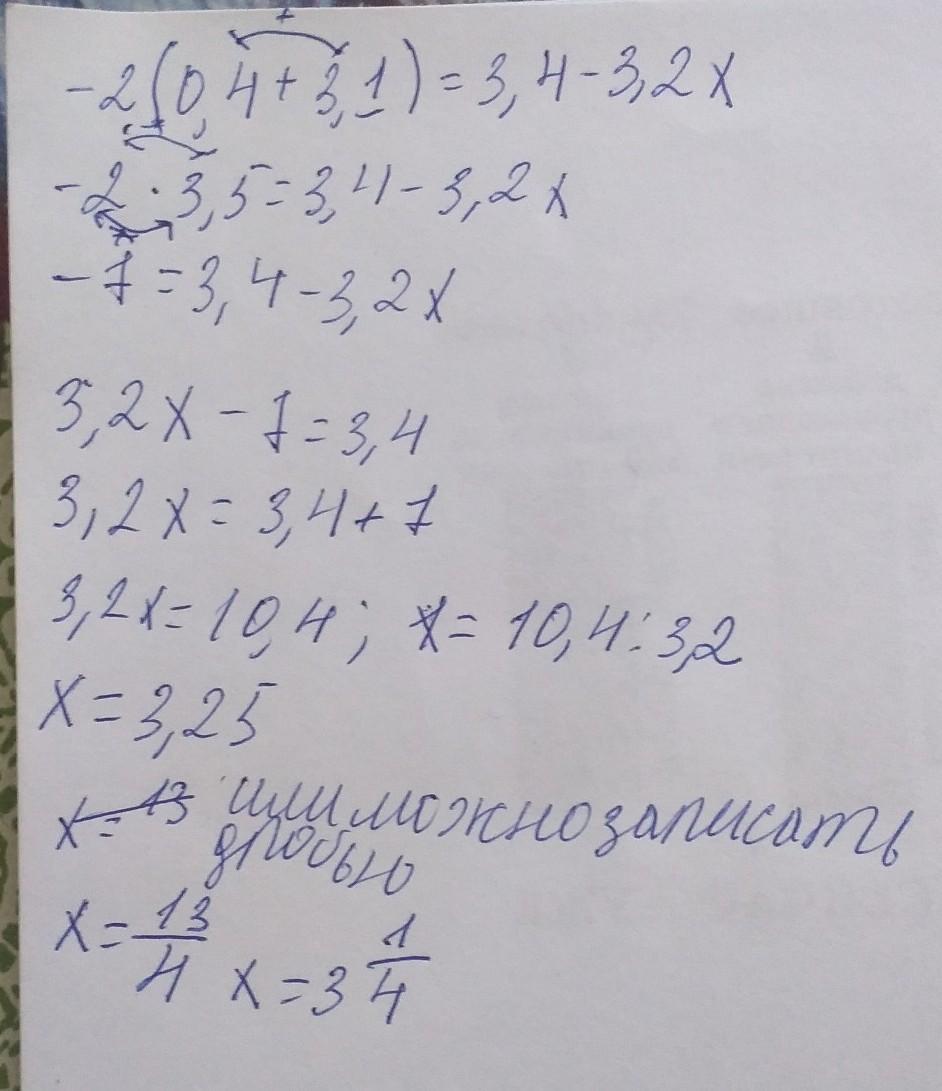 -2(0,4+3,1)=3,4-3,2x
-2·3,5=3,4-3,2x
-7=3,4-3,2x
3,2x-7=3,4
3,2x=3,4+7
3,2x=10,4; x=10,4:3,2
x=3,25
x=13 или можно записать
дробью
x=13/4 x=3 1/4